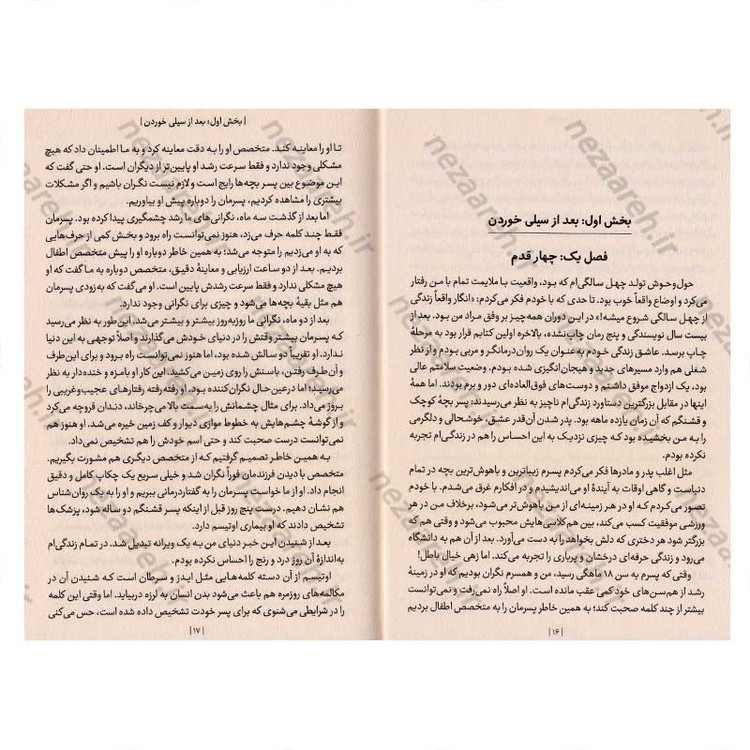 بخش اول: بعد از سیلی خوردن
فصل یک: چهار قدم
حول‌وحوش تولد چهل سالگی‌ام که بود، واقعیت با ملایمت تمام با من رفتار
می‌کرد و اوضاع واقعاً خوب بود. تا حدی که با خودم فکر می‌کردم: «انگار واقعاً زندگی
از چهل سالگی شروع میشه!» در این دوران همه‌چیز بر وفق مراد من بود. بعد از
بیست سال نویسندگی و پنج رمان چاپ‌نشده، بالاخره اولین کتابم قرار بود به مرحلهٔ
چاپ برسد. عاشق زندگی خودم به‌عنوان یک روان‌درمانگر و مربی بودم و از نظر
شغلی هم وارد مسیرهای جدید و هیجان‌انگیزی شده بودم. وضعیت سلامتم عالی
بود، یک ازدواج موفق داشتم و دوست‌های فوق‌العاده‌ای دور و برم بودند. اما همهٔ
اینها در مقابل بزرگترین دستاورد زندگی‌ام ناچیز به نظر می‌رسیدند: پسر بچهٔ کوچک
و قشنگم که آن زمان یازده ماهه بود. پدر شدن آن‌قدر عشق، خوشحالی و دلگرمی
را به من بخشیده بود که چیزی نزدیک به این احساس را هم در زندگی‌ام تجربه
نکرده بودم.
مثل اغلب پدر و مادرها فکر می‌کردم پسرم زیباترین و باهوش‌ترین بچه در تمام
دنیاست و گاهی اوقات به آیندهٔ او می‌اندیشیدم و در افکارم غرق می‌شدم. با خودم
تصور می‌کردم که او در هر زمینه‌ای از من باهوش‌تر می‌شود، برخلاف من در هر
ورزشی موفقیت کسب می‌کند، بین هم‌کلاسی‌هایش محبوب می‌شود و وقتی هم که
بزرگتر شود هر دختری که دلش بخواهد را به دست می‌آورد. بعد از آن هم به دانشگاه
می‌رود و زندگی حرفه‌ای درخشان و پرباری را تجربه می‌کند. اما زهی خیال باطل!
وقتی که پسرم به سن ۱۸ ماهگی رسید، من و همسرم نگران بودیم که او در زمینهٔ
رشد از هم‌سن‌های خود کمی عقب مانده است. او اصلاً راه نمی‌رفت و نمی‌توانست
بیشتر از چند کلمه صحبت کند؛ به همین خاطر پسرمان را به متخصص اطفال بردیم
|۱۶|
| بخش اول: بعد از سیلی خوردن |
تا او را معاینه کند. متخصص او را به دقت معاینه کرد و به ما اطمینان داد که هیچ
مشکلی وجود ندارد و فقط سرعت رشد او پایین‌تر از دیگران است. او حتی گفت که
این موضوع بین پسر بچه‌ها رایج است و لازم نیست نگران باشیم و اگر مشکلات
بیشتری را مشاهده کردیم، پسرمان را دوباره پیش او بیاوریم.
اما بعد از گذشت سه ماه، نگرانی‌های ما رشد چشمگیری پیدا کرده بود. پسرمان
فقط چند کلمه حرف می‌زد، هنوز نمی‌توانست راه برود و بخش کمی از حرف‌هایی
که به او می‌زدیم را متوجه می‌شد؛ به همین خاطر دوباره او را پیش متخصص اطفال
بردیم. بعد از دو ساعت ارزیابی و معاینهٔ دقیق، متخصص دوباره به ما گفت که او
هیچ مشکلی ندارد و فقط سرعت رشدش پایین است. او گفت که به‌زودی پسرمان
هم مثل بقیهٔ بچه‌ها می‌شود و چیزی برای نگرانی وجود ندارد.
بعد از دو ماه، نگرانی ما روزبه‌روز بیشتر و بیشتر می‌شد. این طور به نظر می‌رسید
که پسرمان بیشتر وقتش را در دنیای خودش می‌گذراند و اصلاً توجهی به این دنیا
ندارد. او تقریباً دو سالش شده بود، اما هنوز نمی‌توانست راه برود و برای این‌طرف
و آن‌طرف رفتن، باسنش را روی زمین می‌کشید! این کار او بامزه و خنده‌دار به نظر
می‌رسید؛ اما درعین‌حال نگران‌کننده بود. او رفته‌رفته رفتارهای عجیب‌وغریبی را
بروز می‌داد. برای مثال چشمانش را به‌سمت بالا می‌چرخاند، دندان قروچه می‌کرد
و از گوشهٔ چشم‌هایش به خطوط موازی دیوار و کف زمین خیره می‌شد. او هنوز هم
نمی‌توانست درست صحبت کند و حتی اسم خودش را هم تشخیص نمی‌داد.
به همین خاطر تصمیم گرفتیم که از متخصص دیگری هم مشورت بگیریم.
متخصص با دیدن فرزندمان فوراً نگران شد و خیلی سریع یک چکاپ کامل و دقیق
انجام داد. او از ما خواست پسرمان را به گفتاردرمانی ببریم و او را به یک روان‌شناس
هم نشان دهیم. درست پنج روز قبل از اینکه پسر قشنگم دو ساله شود، پزشک‌ها
تشخیص دادند که او بیماری اوتیسم دارد.
بعد از شنیدن این خبر دنیای من به یک ویرانه تبدیل شد. در تمام زندگی‌ام
به‌اندازهٔ آن روز درد و رنج را احساس نکرده بودم.
اوتیسم از آن دسته کلمه‌هایی مثل ایدز و سرطان است که شنیدن آن در
مکالمه‌های روزمره هم باعث می‌شود بدن انسان به لرزه دربیاید. اما وقتی این کلمه
را در شرایطی می‌شنوی که برای پسر خودت تشخیص داده شده است، حس می‌کنی
|۱۷|
nezaareh.ir